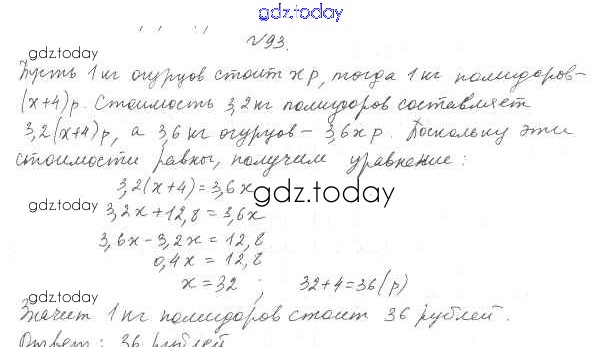 gdz.today
№93.
gdz.today
Пусть 1 кг огурцов стоит x р, тогда 1 кг помидоров-
(x+4) р. Стоимость 3,2 кг помидоров составляет
3,2(x+4) р, а 3,6 кг огурцов – 3,6x р. Поскольку эти
стоимости равны, получим уравнение:
3,2(x+4)=3,6x
gdz.today
gdz.today
3,2x+12,8=3,6x
3,6x-3,2x=12,8
0,4x=12,8
x=32 ; 32+4=36(р)
gdz.today
Значит 1 кг помидоров стоит 36 рублей.
Ответ: 36 рублей